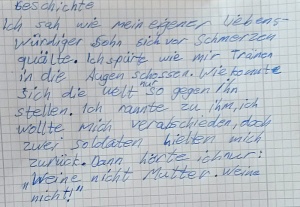 Geschichte
Ich sah wie mein eigener liebens-
würdiger Sohn sich vor Schmerzen
quälte. Ich spürte wie mir Tränen
in die Augen schossen. Wie konnte
sich die Welt nur so gegen ihn
stellen. Ich rannte zu ihm, ich
wollte mich verabschieden, doch
zwei soldaten hielten mich
zurück. Dann hörte ich nur:
"Weine nicht Mutter. Weine
nicht!"